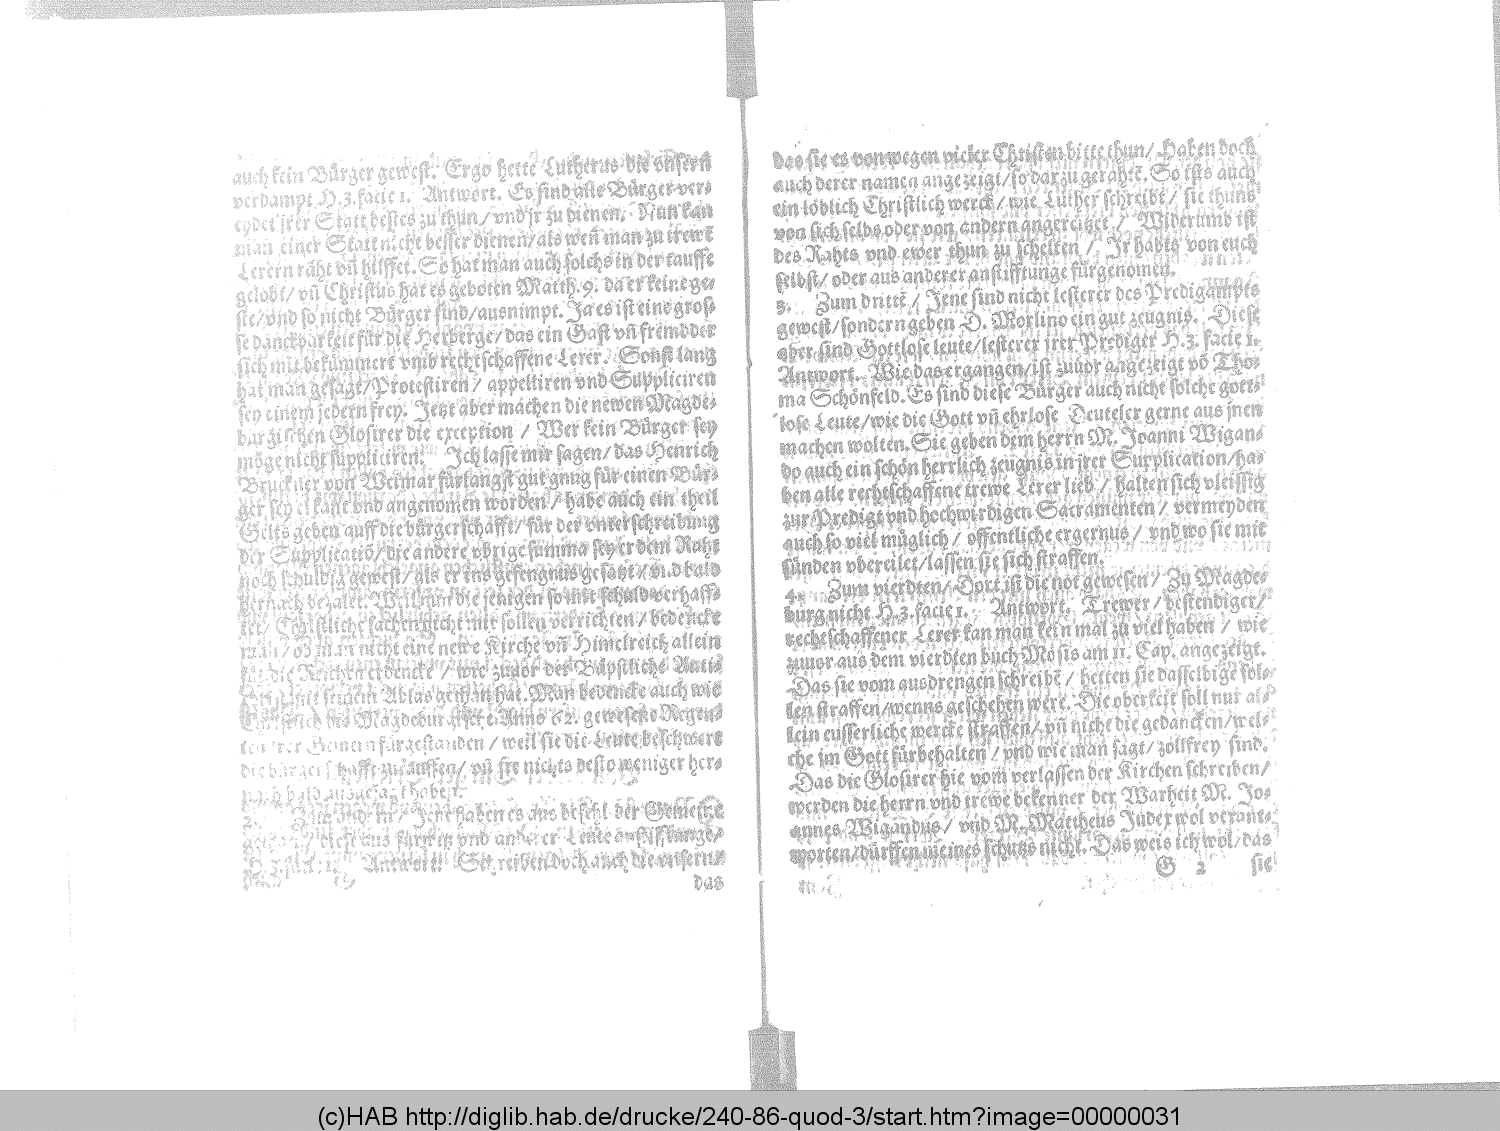 auch kein Bürger gewest. Ergo hette Lutherus die unsern
verdampt H.3.facie 1. Antwort. Es sind alle Bürger ver⸗
eydet jrer Statt bestes zu thun/vnd jr zu dienen. Nun kan
man einer Statt nicht besser dienen/als weñ man zu trewē
Lerern räht vñ hilffet. So hat man auch solchs in der tauffe
gelobt/vñ Christus hat es geboten Matth.9. da er keine ge⸗
ste/vnd so nicht Bürger sind/ausnimpt. Ja es ist eine gros⸗
se danckbarkeit für die Herberge/das ein Gast vñ frembder
sich mit bekümmere vmb rechtschaffene Lerer. Sonst lang
hat man gesagt/Protestiren/appelliren vnd Suppliciren
sey einem jedern frey. Jetzt aber machen die newen Magde⸗
burgischen Glosirer die exception / Wer kein Bürger sey
möge nicht suppliciren. Ich lasse mir sagen/das Henrich
Bruckner von Weimar fürlangst gut gnug für einen Bür⸗
ger sey erkant vnd angenomen worden/habe auch ein theil
Gelts geben auff die bürgerschafft/für der vnterschreibung
der Supplicatiō/die andere vbrige summa sey er dem Raht
noch schuldig gewest/als er ins gefengnus gesatzt/vnd bald
hernach bezalet. Weil nun die jenigen so mit schuld verhaff⸗
tet/Christliche sachen nicht mit sollen verrichten/bedencke
man/ob man nicht eine newe Kirche vñ Himelreich allein
für die Reichen erdencke/wie zuuor der Bäpstliche
seinem Ablas gethan hat. Man bedencke auch wie
Magdeburg Anno 62. gewesene Regen⸗
Gemein fürgestanden/weil sie die Leute beschwert
die bürgerschafft zukauffen/vñ sie nichts desto weniger her⸗
nach bald ausgesagt haben.
2. Zum andern/Jene haben es aus befehl der Gemeine
gethan/diese aus fürwitz vnd anderer Leute anstifftunge/
Antwort. Schreiben doch auch die vnsern/
das
das sie es von wegen vieler Christen bitte thun/Haben doch
auch derer namen angezeigt/so darzu gerahtē. So ists auch
ein löblich Christlich werck/wie Luther schreibt/sie thuns
von sich selbs oder von andern angereitzet/ Widerumb ist
des Rahts vnd ewer thun zu schelten/ Jr habts von euch
selbst/oder aus anderer anstifftunge fürgenomen.
3. Zum dritte/Jene sind nicht lesterer des Predigampts
gewest/sondern geben D. Morlino ein gut zeugnis. Diese
aber sind Gottlose leute/lesterer jrer Prediger H.3. facie 1.
Antwort. Wie das ergangen/ist zuuor angezeigt vō Tho⸗
ma Schönfeld. Es sind diese Bürger auch nicht solche gott⸗
lose Leute/wie die Gott vñ ehrlose Deuteler gerne aus jnen
machen wolten. Sie geben dem herrn M. Joanni Wigan⸗
do auch ein schön herrlich zeugnis in jrer Supplication/ha⸗
ben alle rechtschaffene trewe Lerer lieb/halten sich vleissig
zur Predigt vnd hochwirdigen Sacramenten/vermeyden
auch so viel müglich/offentliche ergernus/vnd wo sie mit
sünden vbereilet/lassen sie sich straffen.
4. Zum vierdten/Dort ist die not gewesen/Zu Magde⸗
burg nicht H.3.facie 1. Antwort. Trewer/bestendiger/
rechtschaffener Lerer kan man kein mal zu viel haben/wie
zuuor aus dem vierdten buch Mosis am 11. Cap. angezeigt.
Das sie vom ausdrengen schreibē/hetten sie dasselbige sol⸗
len straffen/wenns geschehen were. Die oberkeit soll nur al⸗
lein eusserliche wercke straffen/vñ nicht die gedancken/wel⸗
che im Gott fürbehalten/vnd wie man sagt/zollfrey sind.
Das die Glosirer hie vom verlassen der Kirchen schreiben/
werden die herrn vnd trewe bekenner der Warheit M. Jo⸗
annes Wigandus/vnd M. Mattheus Judex wol verant⸗
worten/dürffen meines schutzs nicht. Das weis ich wol/das
G 2 sie
(c)HAB http://diglib.hab.de/drucke/240-86-quod-3/start.htm?image=00000031